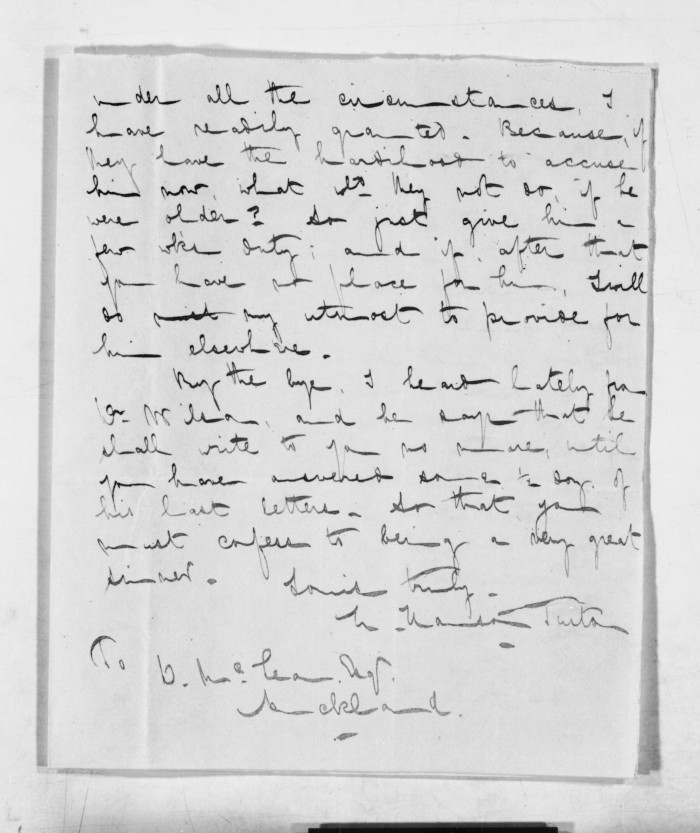 under all the circumstances, I
have readily granted. Because, if
they have the hardihood to accuse
him now, what wd. they not do, if he
were older? So just give him a
few wks duty; and if, after that
you have no place for him, I will
do my utmost to provide for
him elsewhere.
By the bye, I heard lately fm
Dr. Wilson, and he says that he
shall write to you no more, until
you have answered some ½ doz. of
his last letters. So that you
must confess to being a very great
sinner.
Yours truly.
H. Hanson Turton
To
D. McLean Esqr.
Auckland.